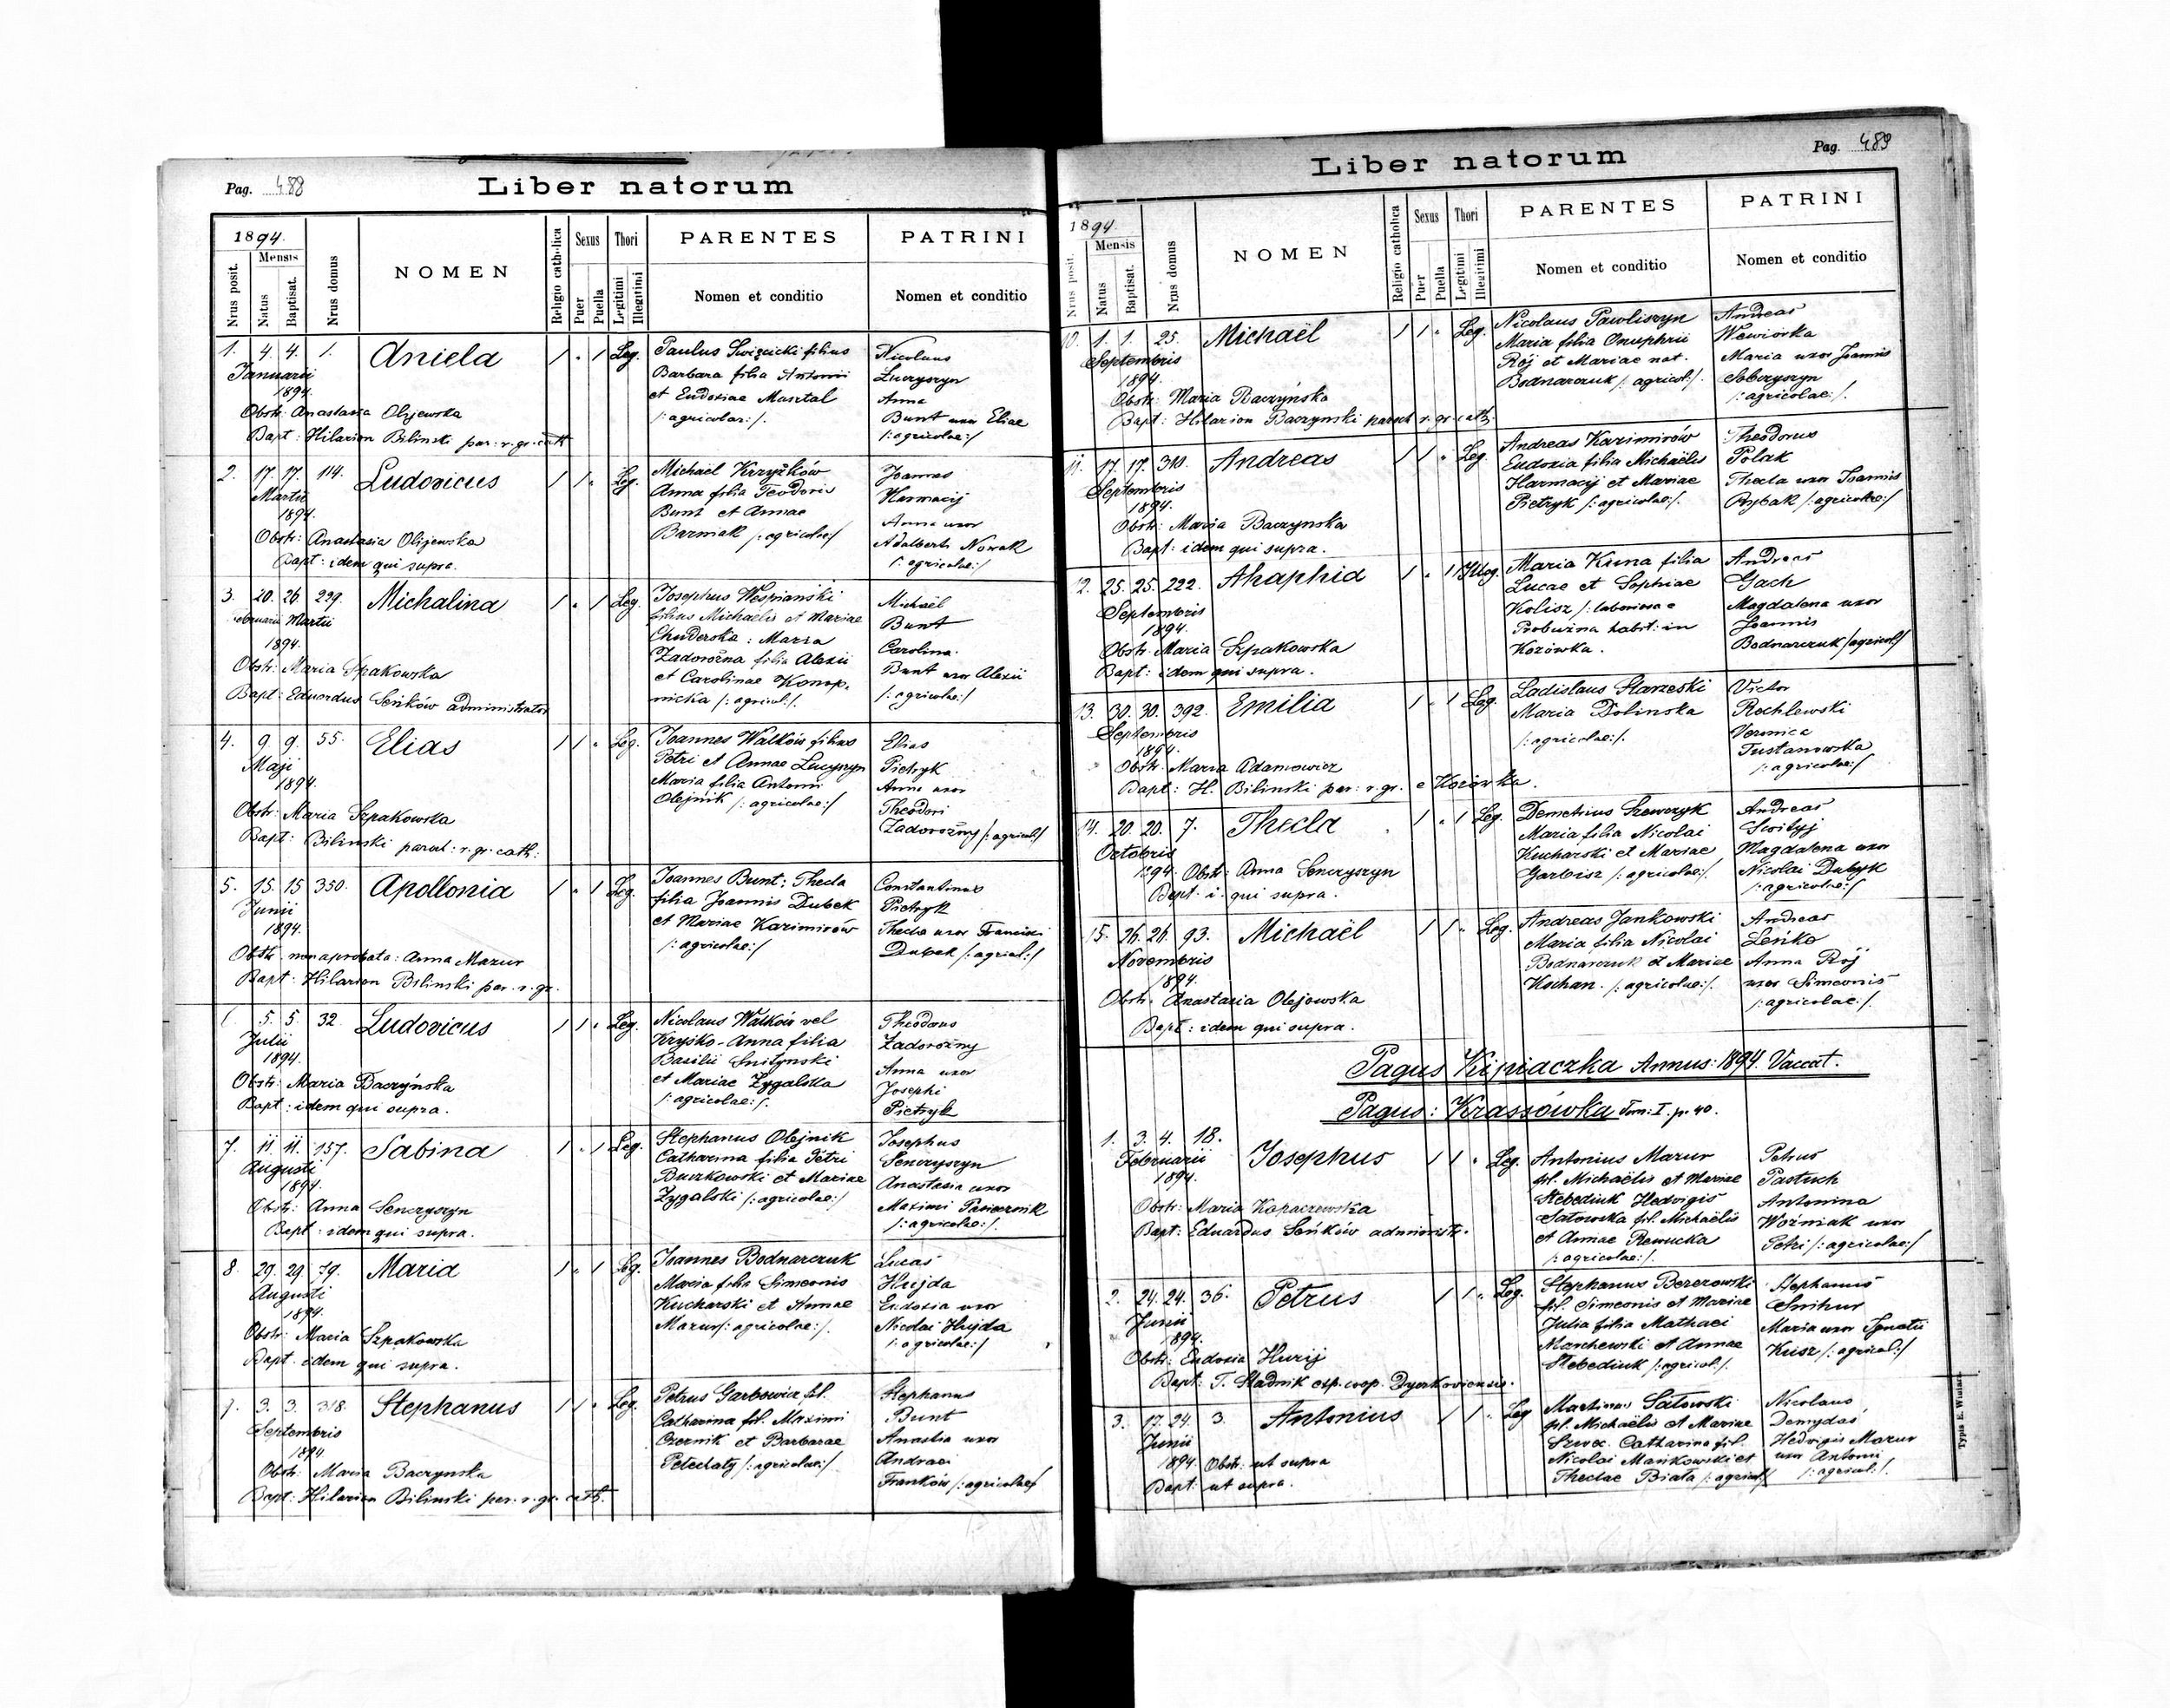 Pag. 488
Liber natorum
1894.
Nrus posit.
Mensis
Natus
Baptisat.
Nrus domus
NOMEN
Religio catholica
Sexus
Puer
Puella
Thori
Legitimi
Illegitimi
PARENTES
Nomen et conditio
PATRINI
Nomen et conditio
1. 4. 4. 1. Aniela / " / Leg.
Januarii
1894.
Obstr: Anastasia Olijewska
Bapt: Hilarion Bilinski par: r. gr. cath
Paulus Swięcicki filius
Barbara filia Antonii
et Eudoxiae Masztal
/: agricolae:/.
Nicolaus
Lucyszyn
Anna
Bunt uxor Eliae
/: agricolae:/
2. 17. 17. 114. Ludovicus / / " Leg.
Martii
1894.
Obstr: Anastasia Olijewska
Bapt: idem qui supra.
Michael Krzyżków
Anna filia Teodoris
Bunt et Annae
Barniak /: agricolae:/
Joannes
Harmacij
Anna uxor
Adalberti Nowak
/: agricolae:/
3. 20. 26. 239. Michalina / " / Leg.
Februarii Martii
1894.
Obstr: Maria Szpakowska
Bapt: Eduardus Seńków administrator
Josephus Wespianski
filius Michaelis et Mariae
Chuderska: Maria
Zadorożna filia Alexii
et Carolinae Konop-
nicka /: agricol:/.
Michaël
Bunt
Carolina
Bunt uxor Alexii
/: agricolae:/
4. 9. 9. 55. Elias / / " Leg.
Maji
1894.
Obstr: Maria Szpakowska
Bapt: Bilinski paroch: r. gr. cath:
Joannes Walków filius
Petri et Annae Lucyszyn
Maria filia Antonii
Olejnik /: agricolae:/
Elias
Pietryk
Anna uxor
Theodori
Zadorożny /: agricol:/
5. 15. 15 350. Apollonia / " / Leg.
Junii
1894.
Obstr. non aprobata: Anna Mazur
Bapt: Hilarion Bilinski par. r. gr.
Joannes Bunt: Thecla
filia Joannis Dubek
et Mariae Kazimirów
/: agricolae:/
Constantinus
Pietryk
Thecla uxor Francisci
Dubek /: agricol:/
5. 5. 32. Ludovicus / / " Leg.
Julii
1894.
Obstr: Maria Baczyńska
Bapt: idem qui supra.
Nicolaus Walków vel
Kryśko - Anna filia
Basilii Snitynski
et Mariae Zygalska
/: agricolae:/.
Theodorus
Zadorożny
Anna uxor
Josephi
Pietryk
7. 11. 11. 157. Sabina / " / Leg.
Augusti
1894.
Obstr: Anna Senczyszyn
Bapt: idem qui supra.
Stephanus Olejnik
Catharina filia Petri
Buczkowski et Mariae
Zygalski /: agricolae:/
Josephus
Senczyszyn
Anastasia uxor
Maximi Pasiecznik
/: agricolae:/.
8. 29. 29. 79. Maria / " / Leg.
Augusti
1894.
Obstr: Maria Szpakowska
Bapt. idem qui supra.
Joannes Bodnarczuk
Maria filia Simeonis
Kucharski et Annae
Mazur /: agricolae:/.
Lucas
Hujda
Eudoxia uxor
Nicolai Hujda
/: agricolae:/
9. 3. 3. 318. Stephanus / / " Leg.
Septembris
1894
Obstr: Maria Baczynska
Bapt: Hilarion Bilinski par: r. gr. cath.
Petrus Garbowicz fil.
Catharina fil. Maximi
Czernik et Barbarae
Petechaty /: agricolae:/
Stephanus
Bunt
Anastia uxor
Andreae
Franków /: agricolae:/
Pag. 489
Liber natorum
1894.
Nrus posit.
Mensis
Natus
Baptisat.
Nrus domus
NOMEN
Religio catholica
Sexus
Puer
Puella
Thori
Legitimi
Illegitimi
PARENTES
Nomen et conditio
PATRINI
Nomen et conditio
10. 1. 1. 25. Michaël / / " Leg.
Septembris
1894.
Obstr: Maria Baczyńska
Bapt: Hilarion Baczynski paroch r. gr. cath.
Nicolaus Pawliszyn
Maria filia Onuphrii
Rój et Mariae nat.
Bodnarczuk /: agricol:/.
Andreas
Wewiorka
Maria uxor Joannis
Sobczyszyn
/: agricolae:/.
11. 17. 17. 310. Andreas / / " Leg.
Septembris
1894.
Obstr: Maria Baczynska
Bapt: idem qui supra.
Andreas Kazimirów
Eudoxia filia Michaëlis
Harmacij et Mariae
Pietryk /: agricolae:/.
Theodorus
Polak
Thecla uxor Joannis
Rybak /: agricolae:/
12. 25. 25. 222. Ahaphia / " / Illeg.
Septembris
1894.
Obstr: Maria Szpakowska
Bapt: idem qui supra.
Maria Kuna filia
Lucae et Sophiae
Kolisz /: laboriosa e
Probużna habit: in
Kozówka.
Andreas
Gach
Magdalena uxor
Joannis
Bodnarczuk /agricol:/
13. 30. 30. 392. Emilia / " / Leg.
Septembris
1894.
Obstr: Maria Adamowicz
Bapt: H. Bilinski par: r. gr. e Kozówka.
Ladislaus Starzeski
Maria Dolinska
/: agricolae:/.
Victor
Rochlewski
Veronica
Tustanowska
/: agricolae:/
14. 20. 20. 7. Thecla / " / Leg.
Octobris
1894. Obstr: Anna Senczyszyn
Bapt: i. qui supra.
Demetrius Szewczyk
Maria filia Nicolai
Kucharski et Mariae
Garbisz /: agricolae:/.
Andreas
Swityj
Magdalena uxor
Nicolai Dubyk
/: agricolae:/
15. 26. 26. 93. Michaël / / " Leg.
Novembris
1894.
Obstr: Anastasia Olejowska
Bapt: idem qui supra.
Andreas Jankowski
Maria filia Nicolai
Bodnarczuk et Mariae
Kochan. /: agricolae:/.
Andreas
Leńko
Anna Rój
uxor Simeonis
/: agricolae:/.
Pagus Kipiaczka Annus: 1894. Vaccat.
Pagus: Krassówka Tom: I. p. 40.
1. 3. 4. 18. Josephus / / " Leg.
Februarii
1894.
Obstr: Maria Kopaczewska
Bapt: Eduardus Seńków administr.
Antonius Mazur
fil. Michaëlis et Mariae
Stebediuk Hedvigis
Satowska fil. Michaëlis
et Annae Rewucka
/: agricolae:/.
Petrus
Pastuch
Antonina
Woźniak uxor
Petri /: agricolae:/
2. 24. 24. 36. Petrus / / " Leg.
Junii
1894.
Obstr: Eudoxia Hurij
Bapt: T. Stadnik exp. coop. Dyczkoviensis.
Stephanus Berezowski
fil. Simeonis et Mariae
Julia filia Mathaei
Marchewski et Annae
Stebediuk /: agricol:/.
Stephanus
Snihur
Maria uxor Ignatii
Kusz /: agricol:/
3. 17. 24. 3. Antonius / / " Leg
Junii
1894. Obstr: ut supra
Bapt: ut supra.
Martinus Satowski
fil. Michaëlis et Mariae
Szwec. Catharina fil.
Nicolai Mańkowski et
Theclae Biała /: agricol:/
Nicolaus
Demydas
Hedvigis Mazur
uxor Antonii
/: agricol:/.